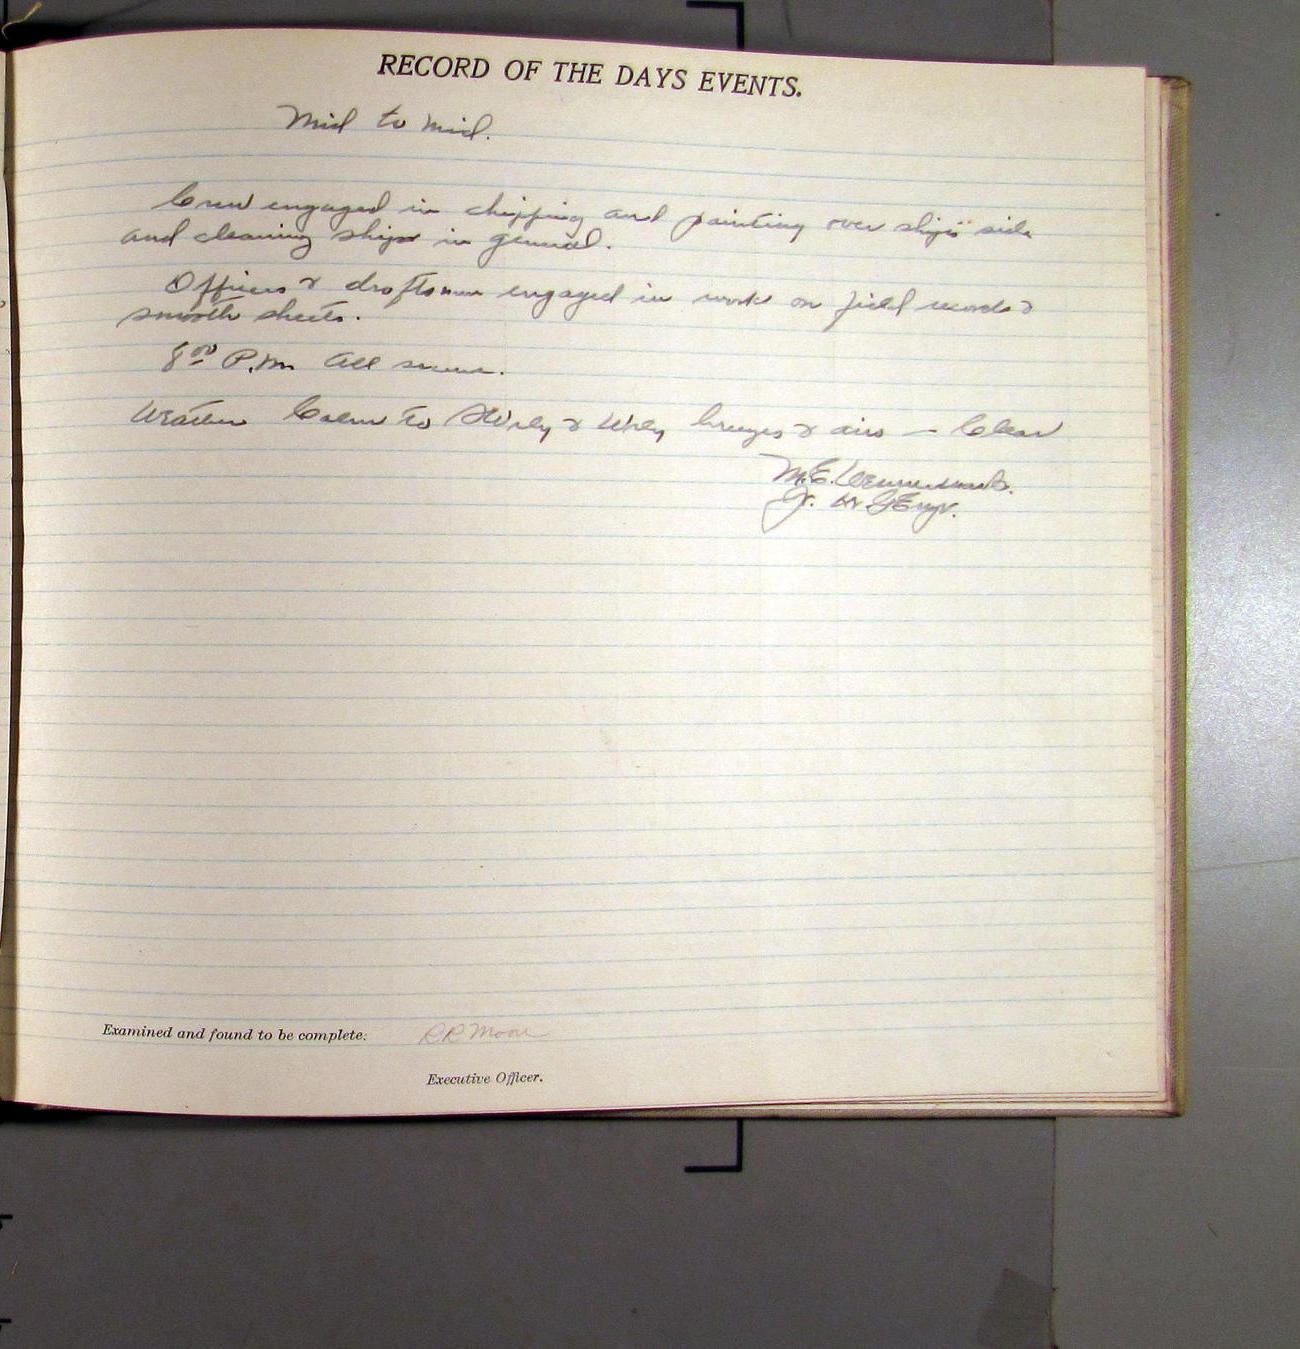 RECORD OF THE DAYS EVENTS.
Mid to Mid.
Crew engaged in chipping and painting over ships side
and cleaning ship in general.
Officers & draftsman engaged in work on field records &
smooth sheets.
8:00 P.M. All secure.
Weather Calm to & W'rly breezes & airs — Clear
M.E.
Jr. H.&G. Engr.
Examined and found to be complete: RR Moore
Executive Officer.